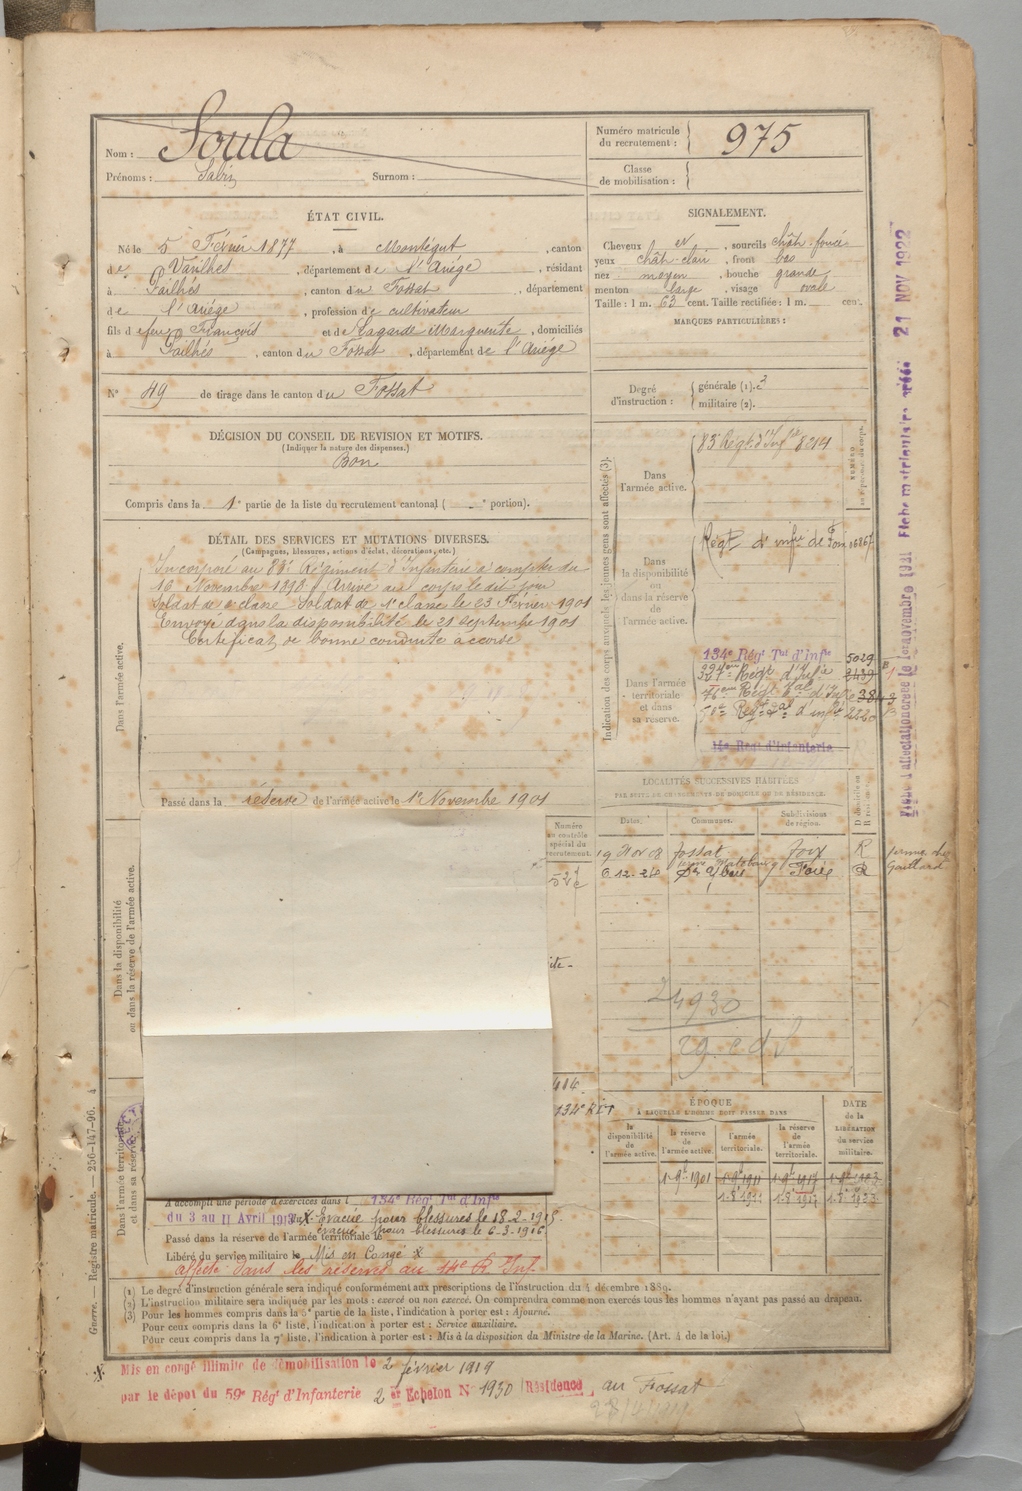 Nom : Soula
Prénoms : Sabin Surnom :
Numéro matricule du recrutement : 975
Classe de mobilisation :
ÉTAT CIVIL.
Né le 5 Février 1877, à Montégut, canton
de Varilhes, département de l'Ariège, résidant
à Pailhés, canton du Fossat, département
de l'Ariège, profession de cultivateur
fils de feu François et de Lagarde Marguerite, domiciliés
à Pailhés, canton du Fossat, département de l'Ariège
N° 49 de tirage dans le canton du Fossat
SIGNALEMENT.
Cheveux et, sourcils chât. foncé
yeux chât. clair, front bas
nez moyen, bouche grande,
menton large, visage ovale
Taille : 1 m. 63 cent. Taille rectifiée : 1 m. cent.
MARQUES PARTICULIÈRES :
Degré d'instruction : générale (1). 3
militaire (2).
DÉCISION DU CONSEIL DE REVISION ET MOTIFS.
(Indiquer la nature des dispenses.)
Bon
Compris dans la 1e partie de la liste du recrutement cantonal ( e portion).
DÉTAIL DES SERVICES ET MUTATIONS DIVERSES.
(Campagnes, blessures, actions d'éclat, décorations, etc.)
Dans l'armée active.
Incorporé au 83e Régiment d'Infanterie à compter du
16 Novembre 1898. Arrivé au corps le dit jour
Soldat de 2e classe. Soldat de 1e classe le 23 Février 1901
Envoyé dans la disponibilité le 21 septembre 1901
Certificat de bonne conduite accordé
Passé dans la réserve de l'armée active le 1er Novembre 1901
Indication des corps auxquels les jeunes gens sont affectés (3).
Dans l'armée active.
83e Régt d'Infie 8214
NUMÉRO
Dans la disponibilité ou dans la réserve de l'armée active.
Régt d'infie de Foix
Dans l'armée territoriale et dans sa réserve.
134e Régt Tal d'Infie 5029
Régt d'Infie 2439
Régt Tal d'Inf
Régt Tal d'infie 2220
14e Reg d'Infanterie
LOCALITÉS SUCCESSIVES HABITÉES
PAR SUITE DE CHANGEMENTS DE DOMICILE OU DE RÉSIDENCE.
Dates. Communes. Subdivisions de région. D domicile R résidence.
19 Nov 08 Fossat Foix R
6-12-26 Foix R
Gaillard
Numéro au contrôle spécial du recrutement.
Dans la disponibilité ou dans la réserve de l'armée active.
ite-
24930
ÉPOQUE
À LAQUELLE L'HOMME DOIT PASSER DANS
la disponibilité de l'armée active.
la réserve de l'armée active.
l'armée territoriale.
la réserve de l'armée territoriale.
DATE de la LIBÉRATION du service militaire.
134e RIT
Dans l'armée territoriale et dans sa réserve.
A accompli une période d'exercices dans l 134e Régt Tal d'Infie
du 3 au 11 Avril 1913 Evacué pour blessures le 18-2-1915
Passé dans la réserve de l'armée territoriale le évacué pour blessures le 6-3-1916
Libéré du service militaire le Mis en Congé X
affecté dans les réserves au 14e R. Inf.
(1) Le degré d'instruction générale sera indiqué conformément aux prescriptions de l'instruction du 4 décembre 1889.
(2) L'instruction militaire sera indiquée par les mots : exercé ou non exercé. On comprendra comme non exercés tous les hommes n'ayant pas passé au drapeau.
(3) Pour les hommes compris dans la 5e partie de la liste, l'indication à porter est : Ajourné.
Pour ceux compris dans la 6e liste, l'indication à porter est : Service auxiliaire.
Pour ceux compris dans la 7e liste, l'indication à porter est : Mis à la disposition du Ministre de la Marine. (Art. 4 de la loi.)
Guerre. — Registre matricule. — 256-147-96. 4
Mis en congé illimité de démobilisation le 2 février 1919
par le dépôt du 59e Régt d'Infanterie 2 er Echelon N° 1930 Résidence au Fossat
21 NOV 1922